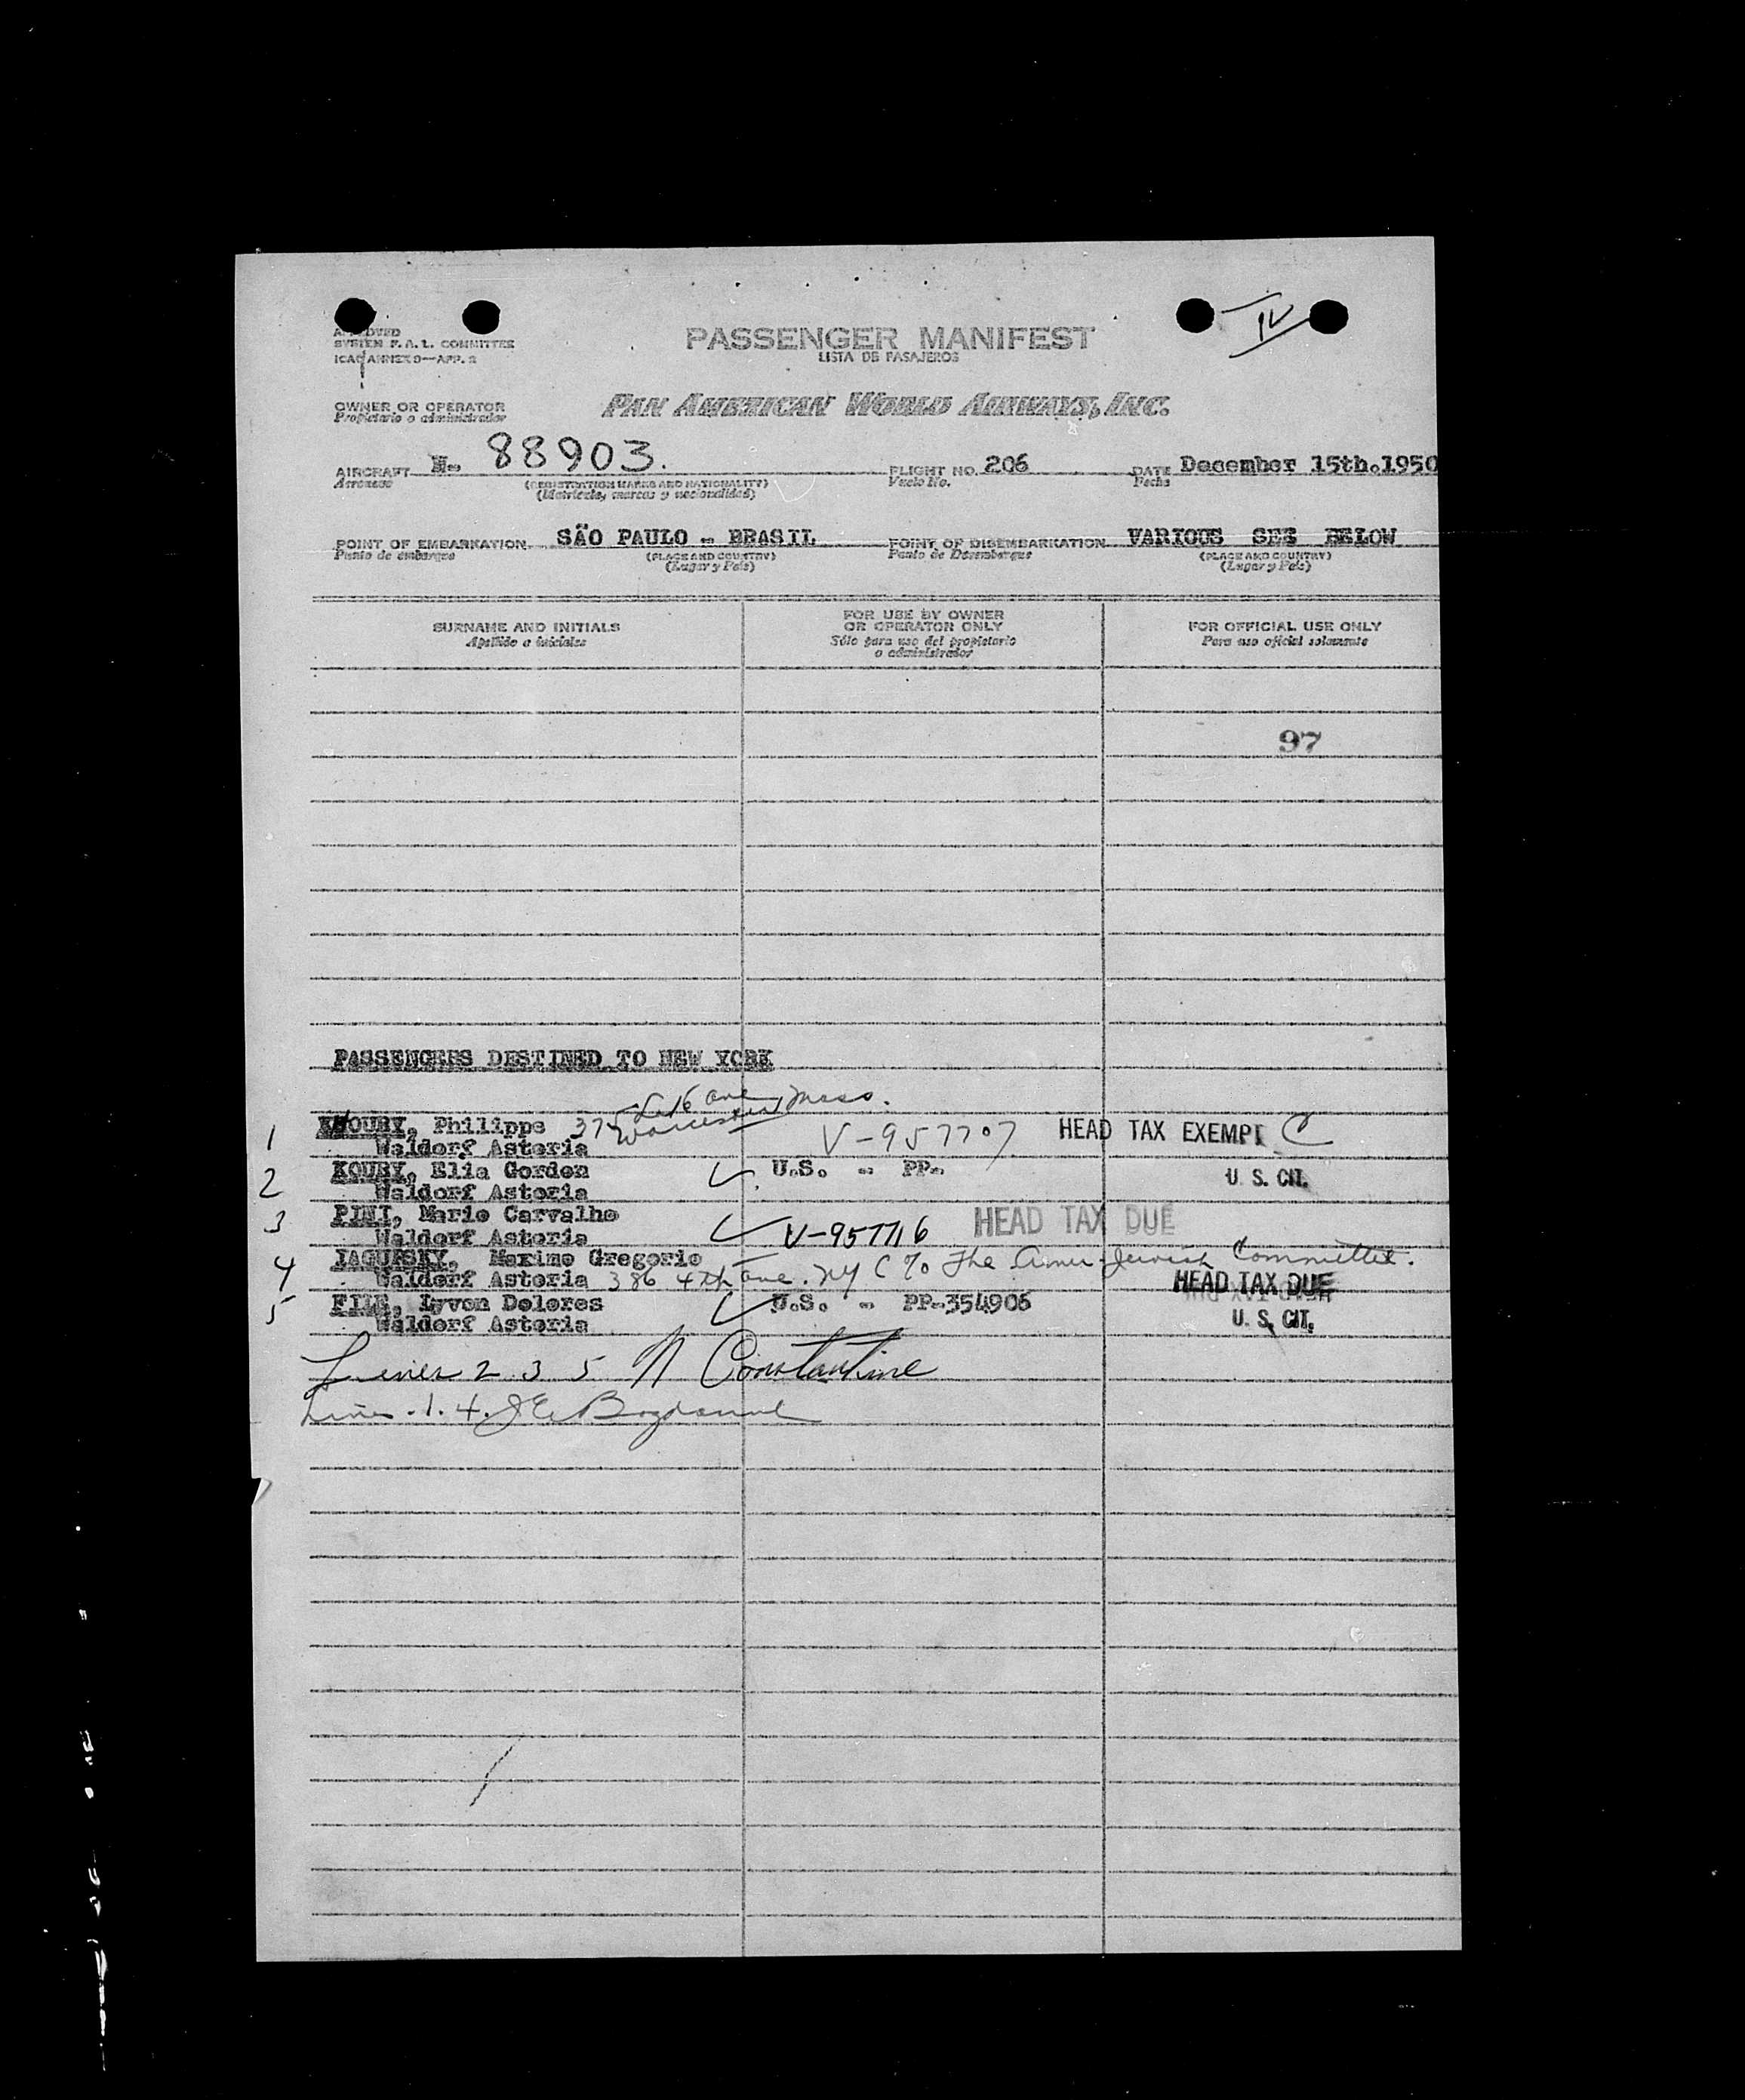 IV
APPROVED
SYSTEM F. A. L. COMMITTEE
ICAO ANNEX 9—APP. 2
PASSENGER MANIFEST
LISTA DE PASAJEROS
OWNER OR OPERATOR
Propietario o administrador
PAN AMERICAN WORLD AIRWAYS, INC.
AIRCRAFT N- 88903. FLIGHT NO. 206 DATE December 15th.1950
Aeronave (REGISTRATION MARKS AND NATIONALITY) Vuelo No. Fecha
(Matrícula, marcas y nacionalidad)
POINT OF EMBARKATION SÃO PAULO - BRASIL POINT OF DISEMBARKATION VARIOUS SEE BELOW
Punto de embarque (PLACE AND COUNTRY) Punto de Desembarque (PLACE AND COUNTRY)
(Lugar y País) (Lugar y País)
SURNAME AND INITIALS
Apellido e iniciales
FOR USE BY OWNER
OR OPERATOR ONLY
Sólo para uso del propietario
o administrador
FOR OFFICIAL USE ONLY
Para uso oficial solamente
97
PASSENGERS DESTINED TO NEW YORK
Ave Mass.
1 KHOURY, Philippe 37 Worcester V-957707 HEAD TAX EXEMPT C
Waldorf Astoria
2 KOURY, Elia Gorden U.S. - PP- U. S. CIT.
Waldorf Astoria
3 PINI, Mario Carvalho
Waldorf Astoria V-957716 HEAD TAX DUE
4 IAGUESKY, Maximo Gregorio
Waldorf Astoria 386 4th ave. NY C % The Amer Jewish Committee.
HEAD TAX DUE
5 FILE, Lyvon Dolores U.S. - PP-354906 U. S. CIT.
Waldorf Astoria
Lines 2 3 5 N Constantine
Lines 1. 4.